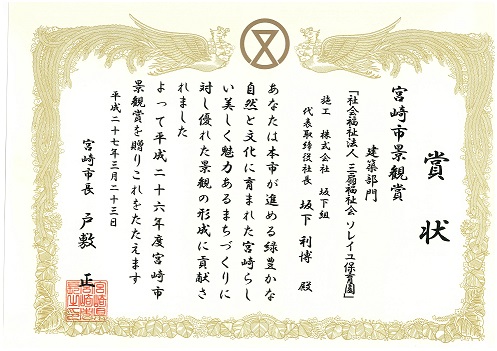 賞状
宮崎市景観賞
建築部門
「社会福祉法人 三扇福祉会 ソレイユ保育園」
施工 株式会社 坂下組
代表取締役社長 坂下 利博 殿
あなたは本市が進める緑豊かな
自然と文化に育まれた宮崎らし
い美しく魅力あるまちづくりに
対し優れた景観の形成に貢献さ
れました
よって平成二十六年度宮崎市
景観賞を贈りこれをたたえます
平成二十七年三月二十三日
宮崎市長 戸敷 正